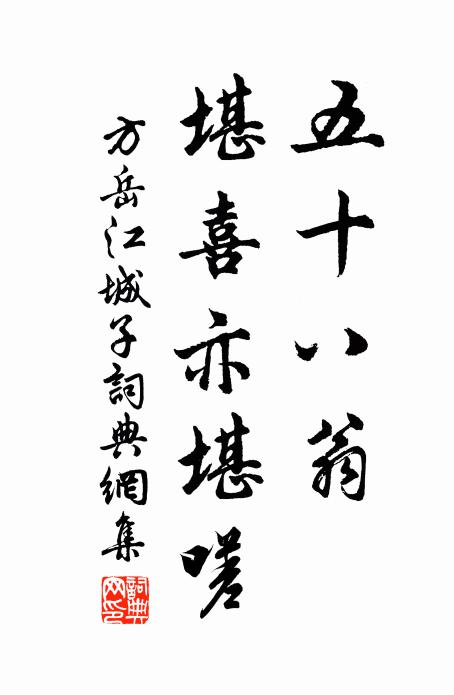 五十八翁
堪喜亦堪嗟
方岳江城子詞典網集
詞典網印